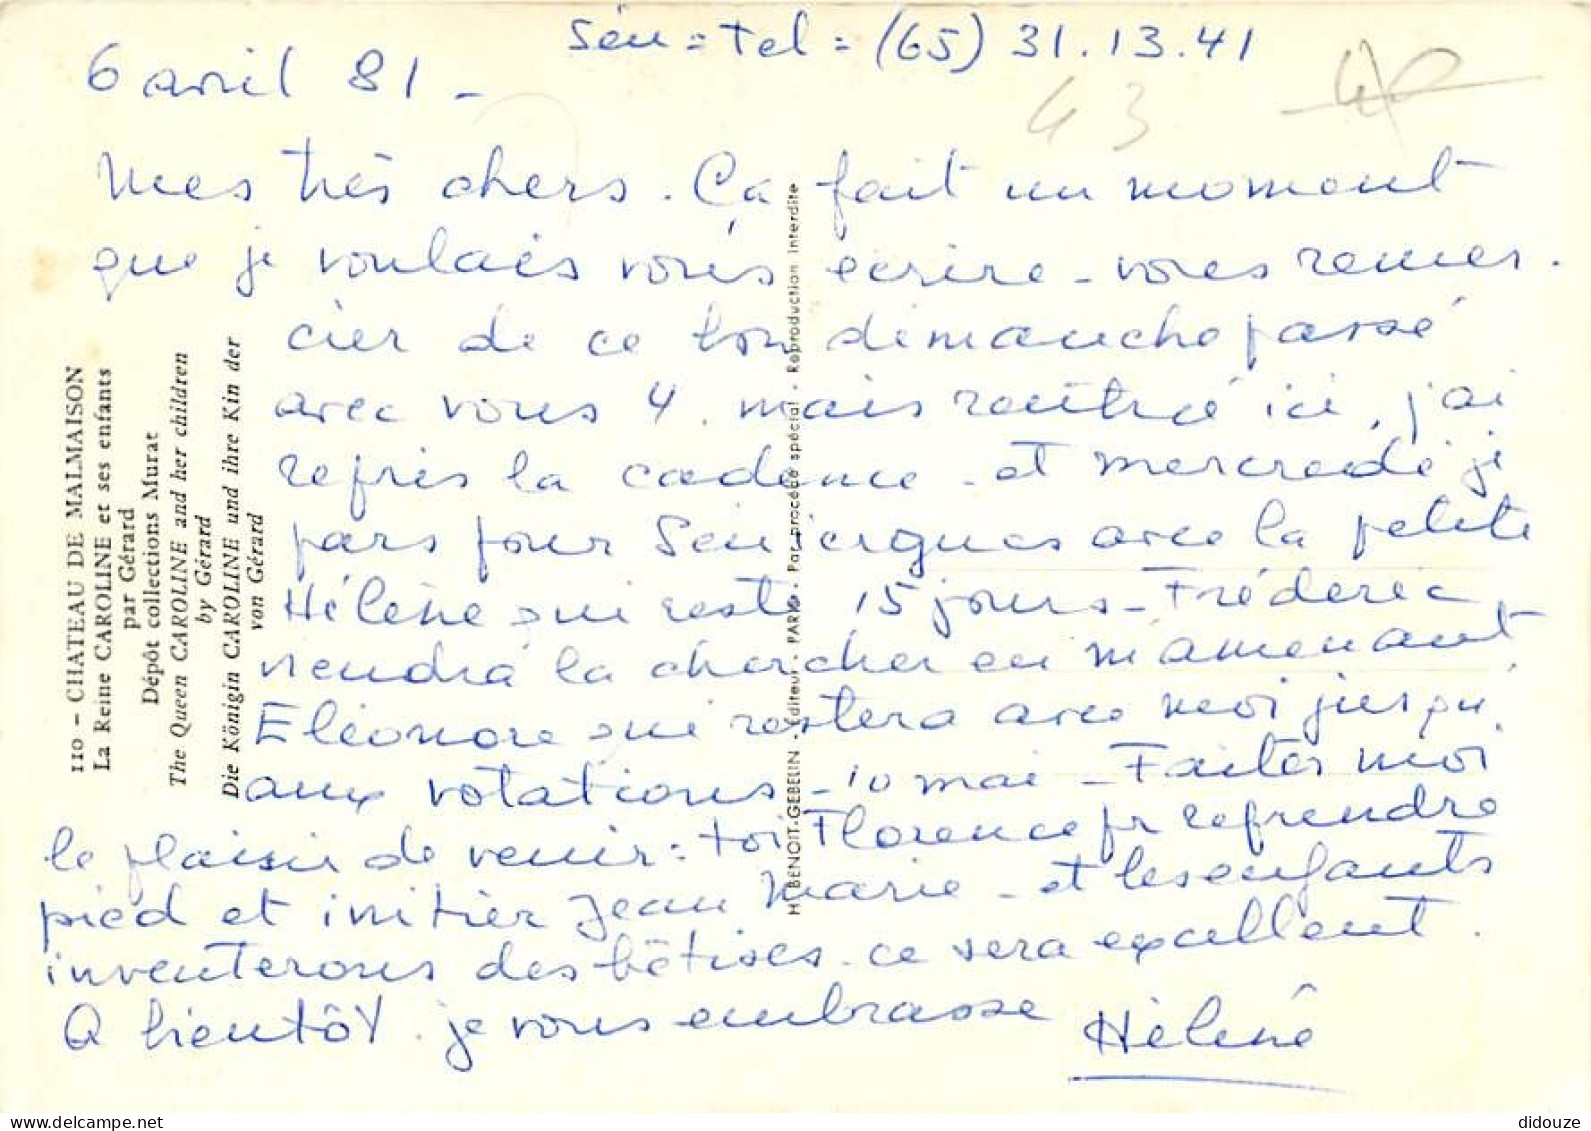 Séu = Tel = (65) 31.13.41
6 avril 81 -
43
Mes très chers. Ça fait un moment
que je voulais vous écrire - vous remer-
cier de ce bon dimanche passé
avec vous 4. mais rentrée ici, j'ai
repris la cadence - et mercredi je
pars pour Séniergues avec la petite
Hélène qui reste 15 jours - Fréderic
viendra la chercher en m'amenant
Eléonore qui restera avec moi jusqu'
aux votations - 10 mai - Faites moi
le plaisir de venir = toi Florence pr reprendre
pied et initier Jean Marie - et les enfants
inventerons des bêtises. ce sera excellent.
A bientôt. je vous embrasse Hélène
110 - CHATEAU DE MALMAISON
La Reine CAROLINE et ses enfants
par Gérard
Dépôt collections Murat
The Queen CAROLINE and her children
by Gérard
Die Königin CAROLINE und ihre Kin der
von Gérard
H. BENOIT-GEBELIN - Éditeur - PARIS - Par procédé spécial - Reproduction interdite
didouze